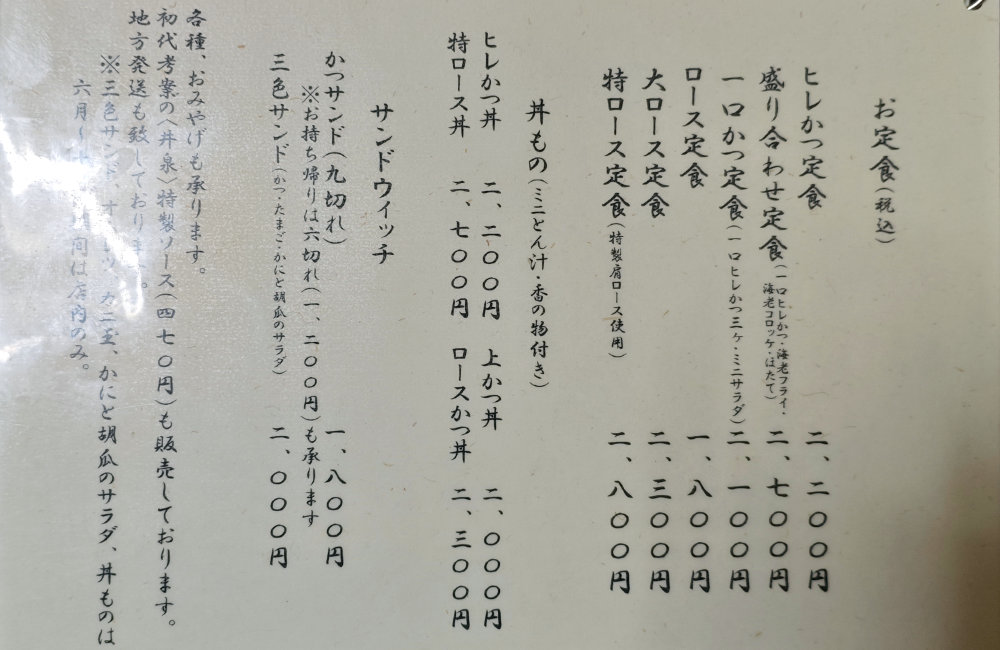 お定食(税込)
ヒレかつ定食 二、二〇〇円
盛り合わせ定食(一口ヒレかつ・海老フライ・海老コロッケ・ほたて) 二、七〇〇円
一口かつ定食(一口ヒレかつ三ヶ・ミニサラダ) 二、一〇〇円
ロース定食 一、八〇〇円
大ロース定食 二、三〇〇円
特ロース定食(特製肩ロース使用) 二、八〇〇円
丼もの(ミニとん汁・香の物付き)
ヒレかつ丼 二、二〇〇円 上かつ丼 二、〇〇〇円
特ロース丼 二、七〇〇円 ロースかつ丼 二、三〇〇円
サンドウィッチ
かつサンド(九切れ) 一、八〇〇円
※お持ち帰りは六切れ(一、二〇〇円)も承ります
三色サンド(かつ・たまご・かにと胡瓜のサラダ) 二、〇〇〇円
各種、おみやげも承ります。
初代考案の〈井泉〉特製ソース(四七〇円)も販売しております。
地方発送も致しております。
※三色サンド、かにと胡瓜のサラダ、丼ものは
六月 間は店内のみ。